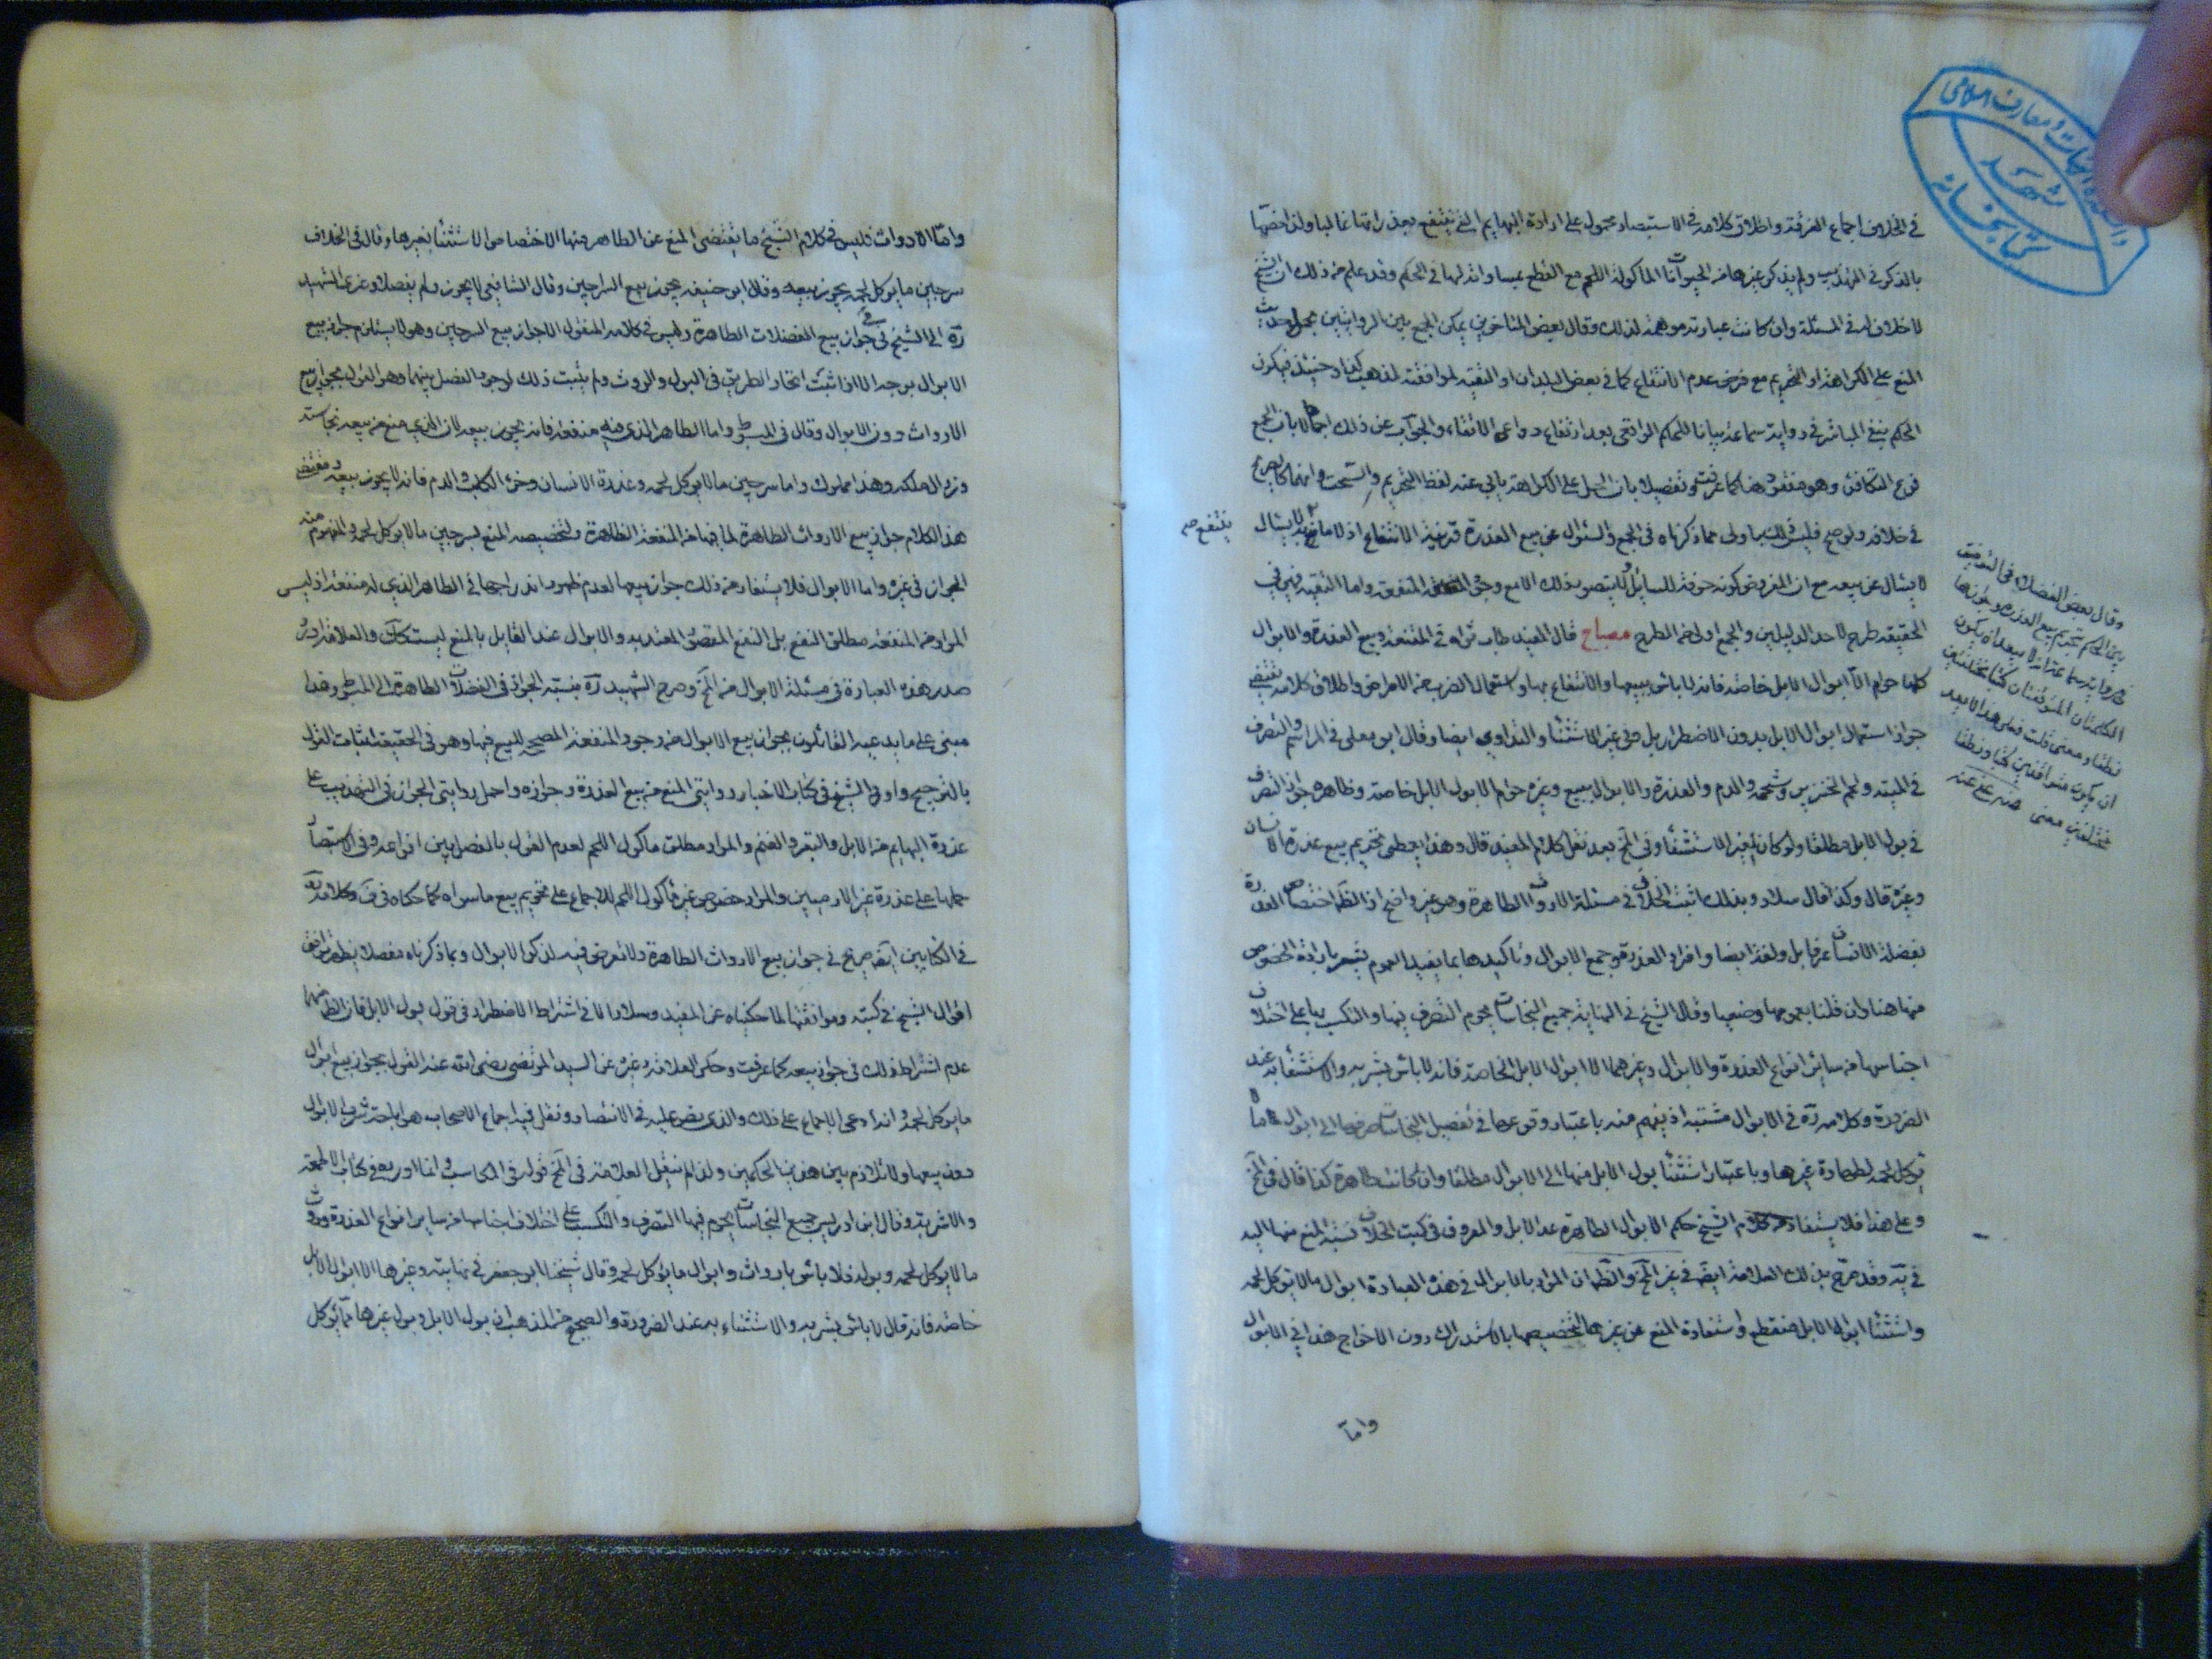 في الخلاف اجماع الفرقة واطلاق كلامه في الاستبصار محمول على ارادة البهايم التي ينتفع بعذراتها غالبا ولذا خصها
بالذكر في التهذيب ولم يذكر غيرها من الحيوانات الماكولة اللحم مع القطع بمساواته لها في الحكم وقد علم من ذلك ان الشيخ
لا خلاف له في المسئلة وان كانت عبارته موهمة لذلك وقال بعض المتاخرين يمكن الجمع بين الروايتين بحمل حديث
المنع على الكراهة او التحريم مع فرض عدم الانتفاع كما في بعض البلدان او التقية لموافقته لمذهب حينئذ فيكون
الحكم بنفي الباس في رواية سماعة بيانا للحكم الواقعي بعد ارتفاع دواعي الاتقاء والجواب عن ذلك اجمالا بان الجمع
فرع التكافؤ وهو مفقود هنا كما عرفت وتفصيلا بان الحمل على الكراهة يابى عنه لفظ التحريم والسحت
في خلافه ولو صح فليس ذلك باولى مما ذكرناه في الجمع والسئوال عن بيع العذرة قرينة الانتفاع اذ لا يسئال
ينتفع صح
لا يسئال عن بيعه مع ان المفروض كونه حرفة للسايل ولا يتصور ذلك الا مع وجود المنفعة واما التقية فهي في
الحقيقة طرح لاحد الدليلين والجمع اولى من الطرح مصباح قال المفيد طاب ثراه في المقنعة وبيع العذرة والابوال
كلها حرام الا ابوال الابل خاصة فانه لا باس ببيعها والانتفاع بها واستعمال الضرب من الامراض واطلاق كلامه يقتضي
جواز استعمال ابوال الابل بدون الاضطرار بل وفي غير الاستشفاء والتداوي ايضا وقال ابو يعلى في المراسم والتصرف
في الميتة ولحم الخنزير وشحمه والدم والعذرة والابوال ببيع وغيره حرام الا بول الابل خاصة وظاهره جواز التصرف
في بول الابل مطلقا ولو كان لغير الاستشفاء وفي المخ بعد نقل كلام المفيد قال وهذا يعطي تحريم بيع عذرة الانسان
وغيره قال وكذا قال سلار وبذلك اثبت الخلاف في مسئلة الارواث الطاهرة وهو غير واضح اذ الظ اختصاص العذرة
بفضلة الانسان عرفا بل ولغة ايضا وافراد العذرة وجمع الابوال وتاكيدها بما يفيد العموم يشعر بارادة الخصوص
منها هنا وان قلنا بعمومها وضعا وقال الشيخ في النهاية جميع النجاسات يحرم التصرف فيها والتكسب بها على اختلاف
اجناسها من سائر انواع العذرة والابوال وغيرهما الا ابوال الابل الخاصة فانه لا باس بشربه والاستشفاء به عند
الضرورة وكلامه ره في الابوال مشتبه اذ يفهم منه باعتبار وقوعها في تفصيل النجاسات صرفها الى ابوال ما لا
يؤكل لحمه لطهارة غيرها وباعتبار استثناء بول الابل منها الى الابوال مطلقا وان كانت طاهرة كذا قال في المخ
وعلى هذا فلا يستفاد من كلام الشيخ حكم الابوال الطاهرة عدا الابل والمعروف في كتب الخلاف نسبة المنع منها اليه
في يه وقد صرح بذلك العلامة ايضا في غير المخ والظ ان المراد بالابوال في هذه العبارة ابوال ما لا يؤكل لحمه
واستثناء ابوال الابل منقطع واستفادة المنع عن غيرها لتخصيصها بالاستدراك دون الاخراج هذا في الابوال
واما
وقال بعض الفضلاء في التوفيق
بين الحكم بتحريم بيع العذرة وجوازها
في رواية سماعة انه لا يبعد ان يكون
الكلمتان المتوفقتان كتبا مختلفتين
نطقا ومعنى قلت وعلى هذا لا يبعد
ان يكون متوافقتين كتبا ونطقا
مختلفتين معنى منه عفي عنه
كتابخانه
مشهد
ومعارف اسلامى
واما الارواث فليس في كلام الشيخ ما يقتضي المنع عن الطاهر منها الاختصاص الاستثناء بغيرها وقال في الخلاف
سرجين ما يوكل لحمه يجوز بيعه وقال ابو حنيفة يجوز بيع السراجين وقال الشافعي لا يجوز ولم يفصلا وعزى الشهيد
ره الى الشيخ في ف جواز بيع الفضلات الطاهرة وليس في كلامه المنقول الا جواز بيع السرجين وهو لا يستلزم جواز بيع
الابوال بوجه الا اذا ثبت اتحاد الطريق في البول والروث ولم يثبت ذلك لوجود الفصل بينهما وهو القول بجواز بيع
الارواث دون الابوال وقال في المبسوط واما الطاهر الذي فيه منفعة فانه يجوز بيعه لان الذي منع من بيعه نجاسته
وزوال ملكه وهذا مملوك واما سرجين ما لا يوكل لحمه وعذرة الانسان وخرء الكلاب والدم فانه لا يجوز بيعه ومقتضى
هذا الكلام جواز بيع الارواث الطاهرة لما فيها من المنفعة الظاهرة ولتخصيصه المنع بسرجين ما لا يوكل لحمه والمفهوم منه
الجواز في غيره واما الابوال فلا يستفاد من ذلك جواز بيعها لعدم ظهور اندراجها في الطاهر الذي له منفعة اذ ليس
المراد من المنفعة مطلق النفع بل النفع المقصود المعتد به والابوال عند القايل بالمنع ليست كذلك والعلامة اورد
صدر هذه العبارة في مسئلة الابوال من المخ وصرح الشهيد ره بنسبة الجواز في الفضلات الطاهرة الى المبسوط وهذا
مبني على ما يدعيه القائلون بجواز بيع الابوال من وجود المنفعة المصحح للبيع فيها وهو في الحقيقة اثبات القول
بالترجيح واورد الشيخ في كتاب الاخبار روايتي المنع من بيع العذرة وجوازه واحمل روايتي الجواز في التهذيب على
عذرة البهايم من الابل والبقر والغنم والمراد مطلق ماكول اللحم لعدم القول بالفصل بين انواعه وفي الاستبصار
حملها على عذرة غير الادميين والمراد خصوص غير ماكول اللحم للاجماع على تحريم بيع ما سواه كما حكاه في ف وكلامه
في الكتابين ايضا صريح في جواز بيع الارواث الطاهرة ولا تعرض فيه لذكر الابوال وبما ذكرناه مفصلا يظهر توافق
اقوال الشيخ في كتبه وموافقتها لما حكيناه عن المفيد وسلار الا في اشتراط الاضطرار في قول بول الابل فان الظ منهما
عدم اشتراط ذلك في جواز بيعه كما عرفت وحكى العلامة وغيره عن السيد المرتضى رضى الله عنه القول بجواز بيع ابوال
ما يوكل لحمه وانه ادعى الاجماع على ذلك والذي نص عليه في الانتصار ونقل فيه اجماع الاصحاب هو اباحة شرب الابوال
دون بيعها ولا تلازم بين هذين الحكمين ولذا لم ينقل العلامة في المخ قوله في المكاسب وانما اورده في كتاب الاطعمة
والاشربة وقال ابن ادريس جميع النجاسات يحرم فيها التصرف والتكسب على اختلاف اجناسها من ساير انواع العذرة وروث
ما لا يوكل لحمه وبوله فلا باس بارواث وابوال ما يؤكل لحمه وقال شيخنا ابو جعفر في نهايته وغيرها الا ابوال الابل
خاصة فانه قال لا باس بشربه والاستشفاء به عند الضرورة والصحيح من المذهب ان بول الابل وبول غيرها مما يؤكل